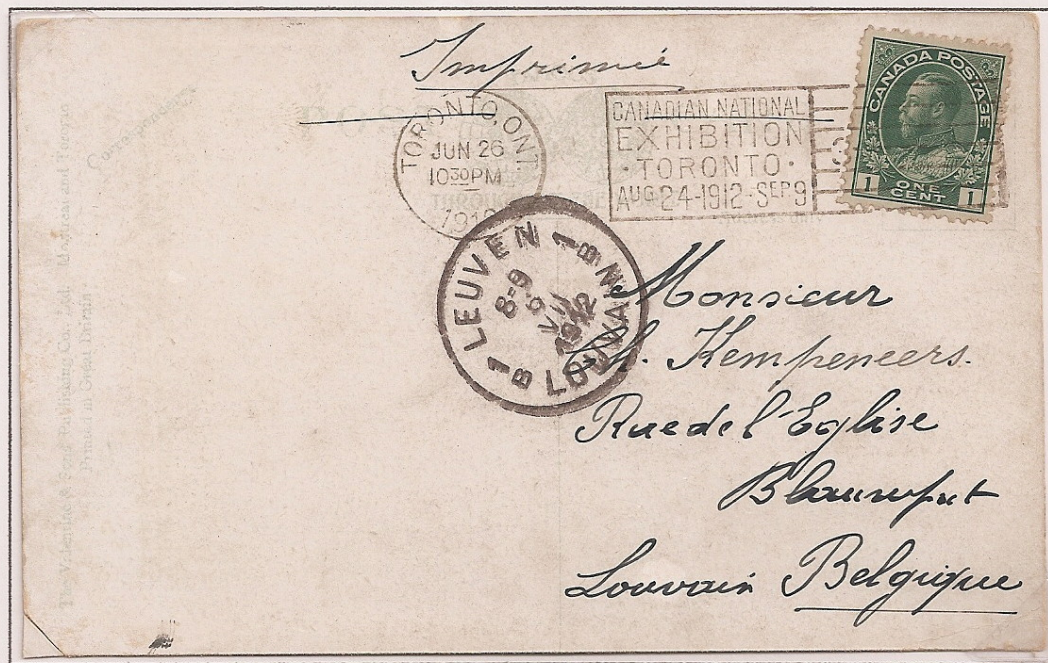 Imprimé
TORONTO, ONT.
JUN 26
10 30 PM
1912
CANADIAN NATIONAL
EXHIBITION
· TORONTO ·
AUG 24-1912-SEP 9
CANADA POSTAGE
1 ONE CENT 1
LEUVEN
1B
8-9
VII
1912
LOUVAIN
1B
Monsieur
Kempeneers.
Rue de l'Eglise
Louvain Belgique
Correspondence
The Valentine & Sons Publishing Co., Ltd., Montreal and Toronto
Printed in Great Britain